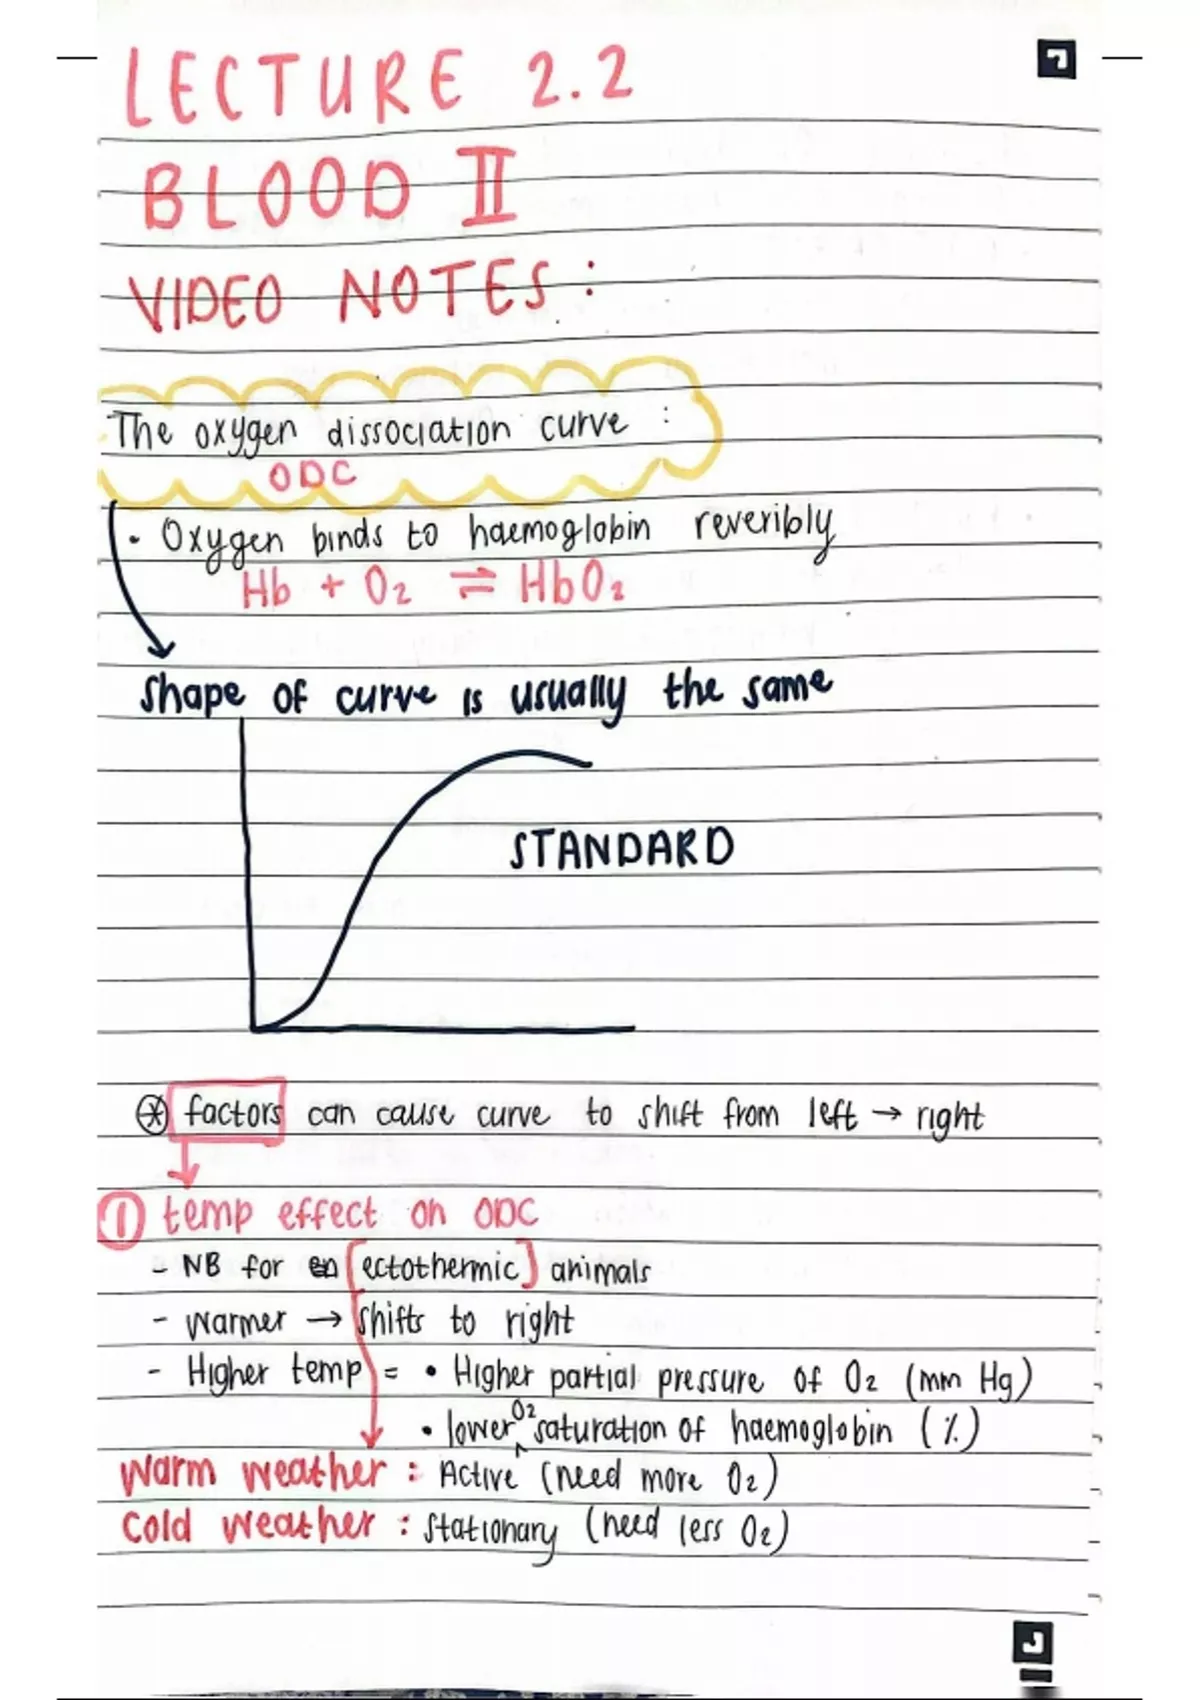 LECTURE 2.2
BLOOD II
VIDEO NOTES:
The oxygen dissociation curve :
ODC
• Oxygen binds to haemoglobin reveribly
Hb + O₂ ⇌ HbO₂
shape of curve is usually the same
STANDARD
⊛ factors can cause curve to shift from left → right
① temp effect on ODC
- NB for en [ectothermic] animals
- warmer → shifts to right
- Higher temp = • Higher partial pressure of O₂ (mm Hg)
• lower O₂ saturation of haemoglobin (%)
Warm weather : Active (need more O₂)
Cold weather : stationary (need less O₂)